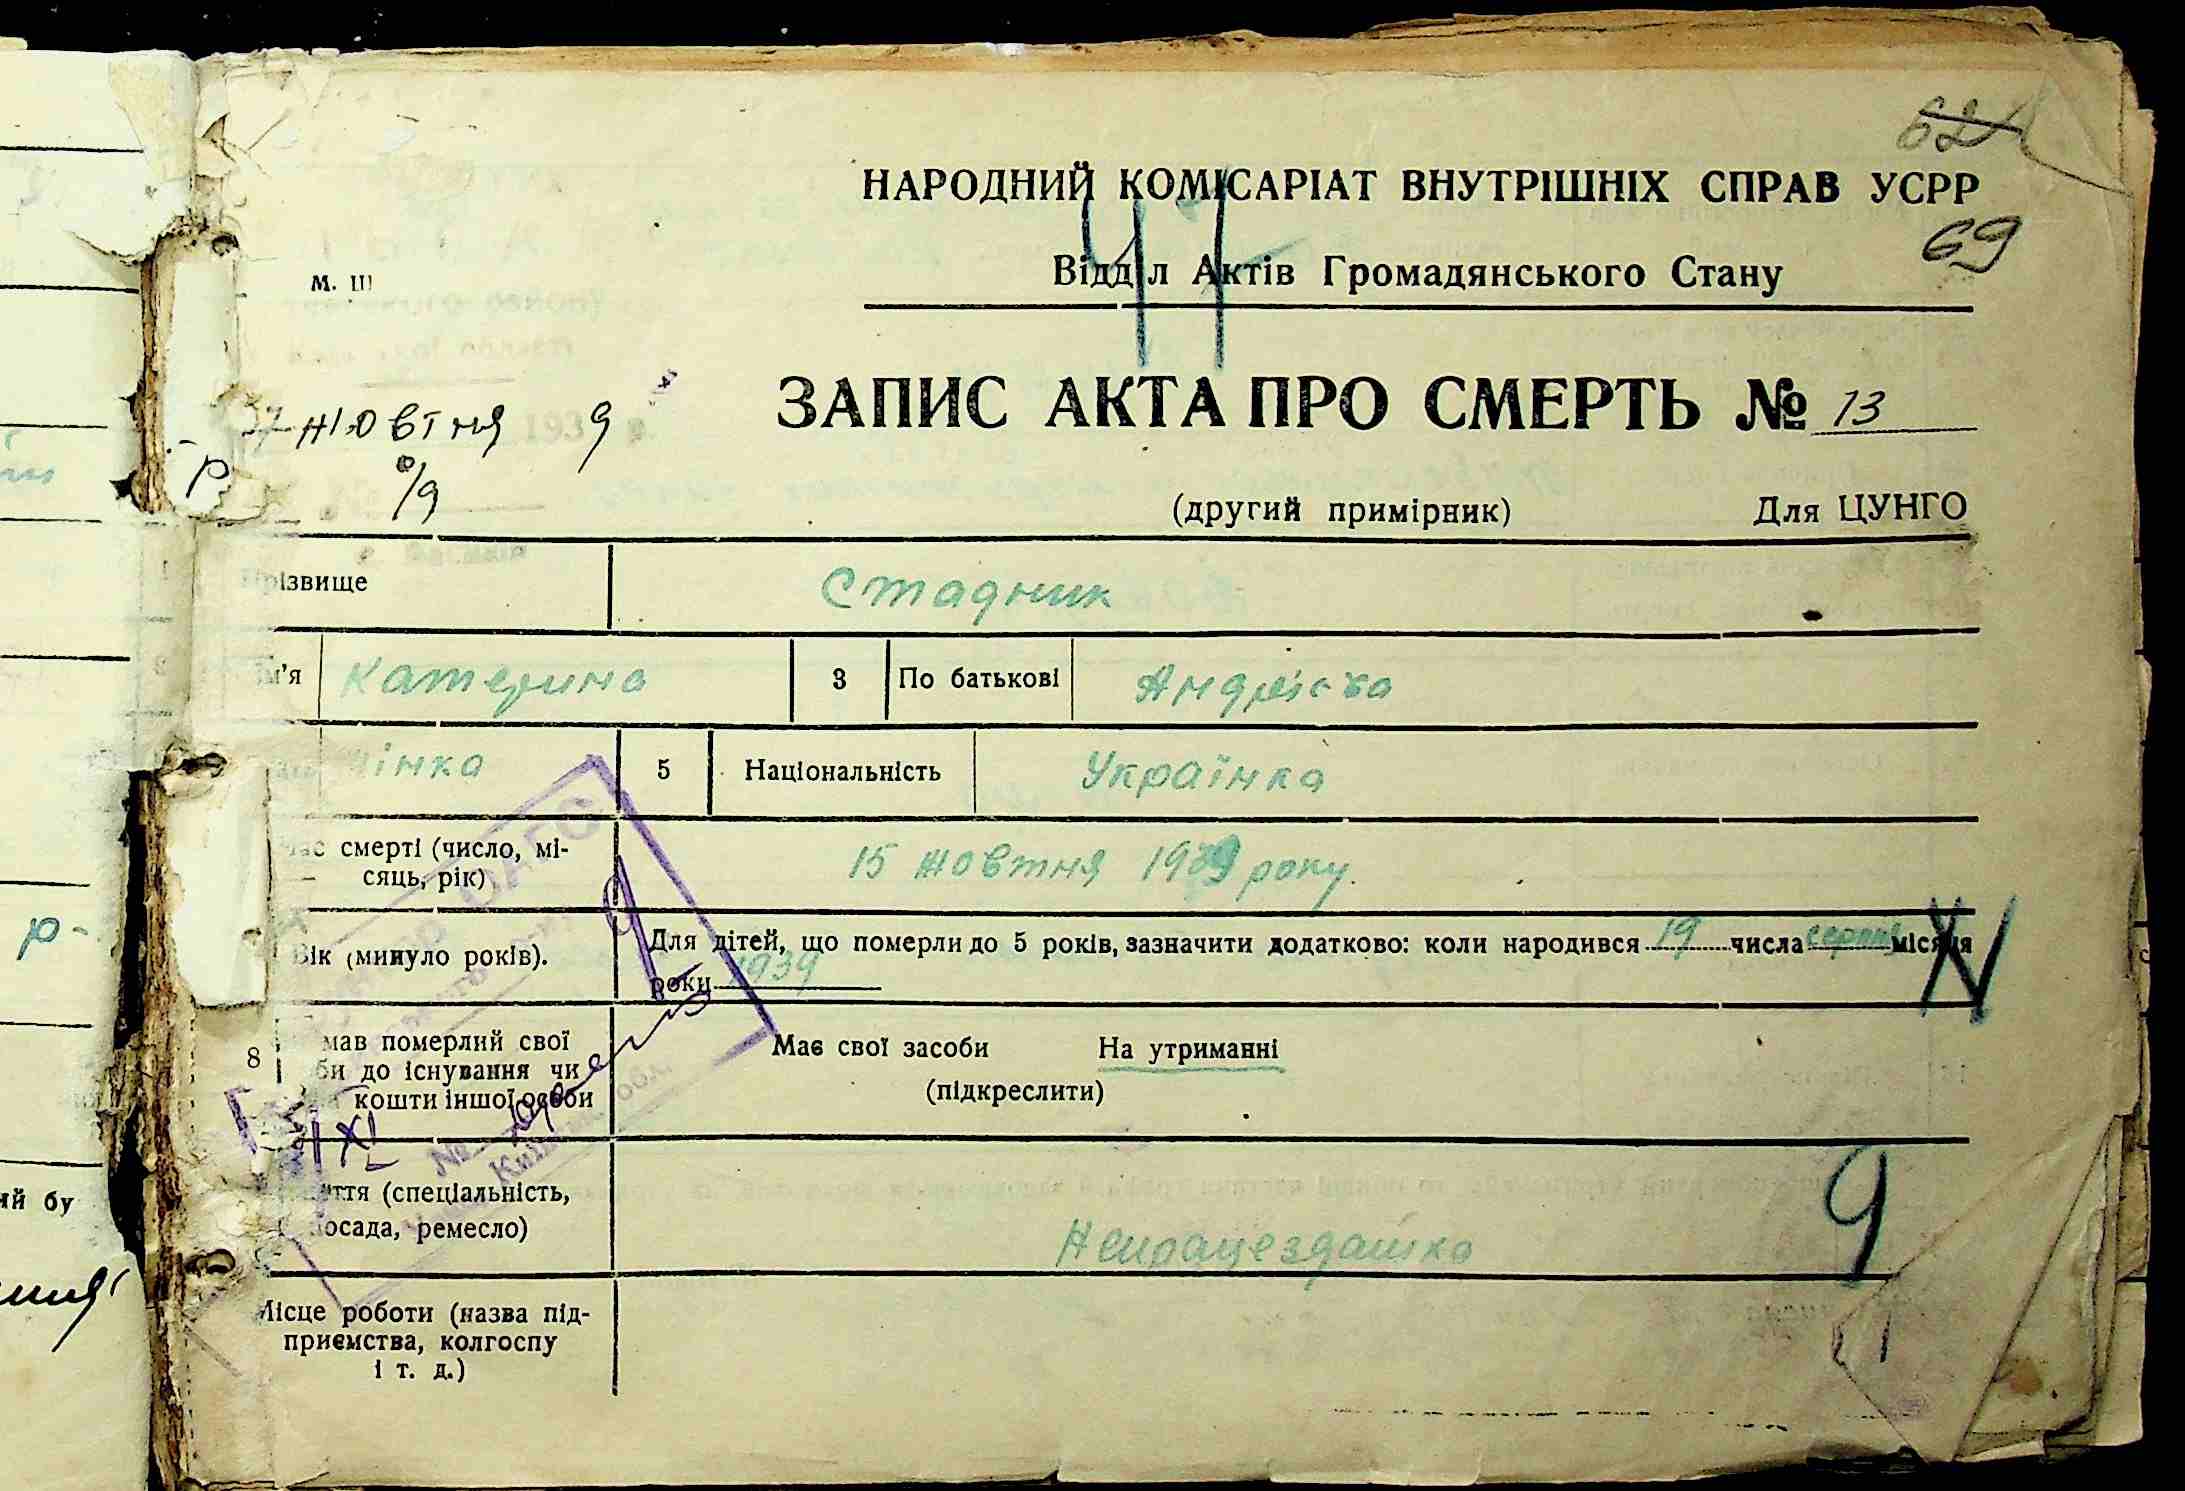 62
НАРОДНИЙ КОМІСАРІАТ ВНУТРІШНІХ СПРАВ УСРР
69
47
м. Ш
Відділ Актів Громадянського Стану
ЗАПИС АКТА ПРО СМЕРТЬ № 13
жовтня 1939 р.
(другий примірник) Для ЦУНГО
Прізвище Стадник
Ім'я Катерина 3 По батькові Андріївна
жінка 5 Національність Українка
Час смерті (число, мі-
сяць, рік) 15 жовтня 1939 року.
Вік (минуло років). Для дітей, що померли до 5 років, зазначити додатково: коли народився 19 числа серпня місяця
року 1939
8 мав померлий свої
би до існування чи
кошти іншої особи
Має свої засоби На утриманні
(підкреслити)
ття (спеціальність,
посада, ремесло) Непрацездатна
9
Місце роботи (назва під-
приємства, колгоспу
і т. д.)
р-
ий бу